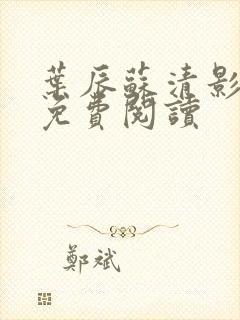 葉辰蘇清影
免費閱讀
鄭斌